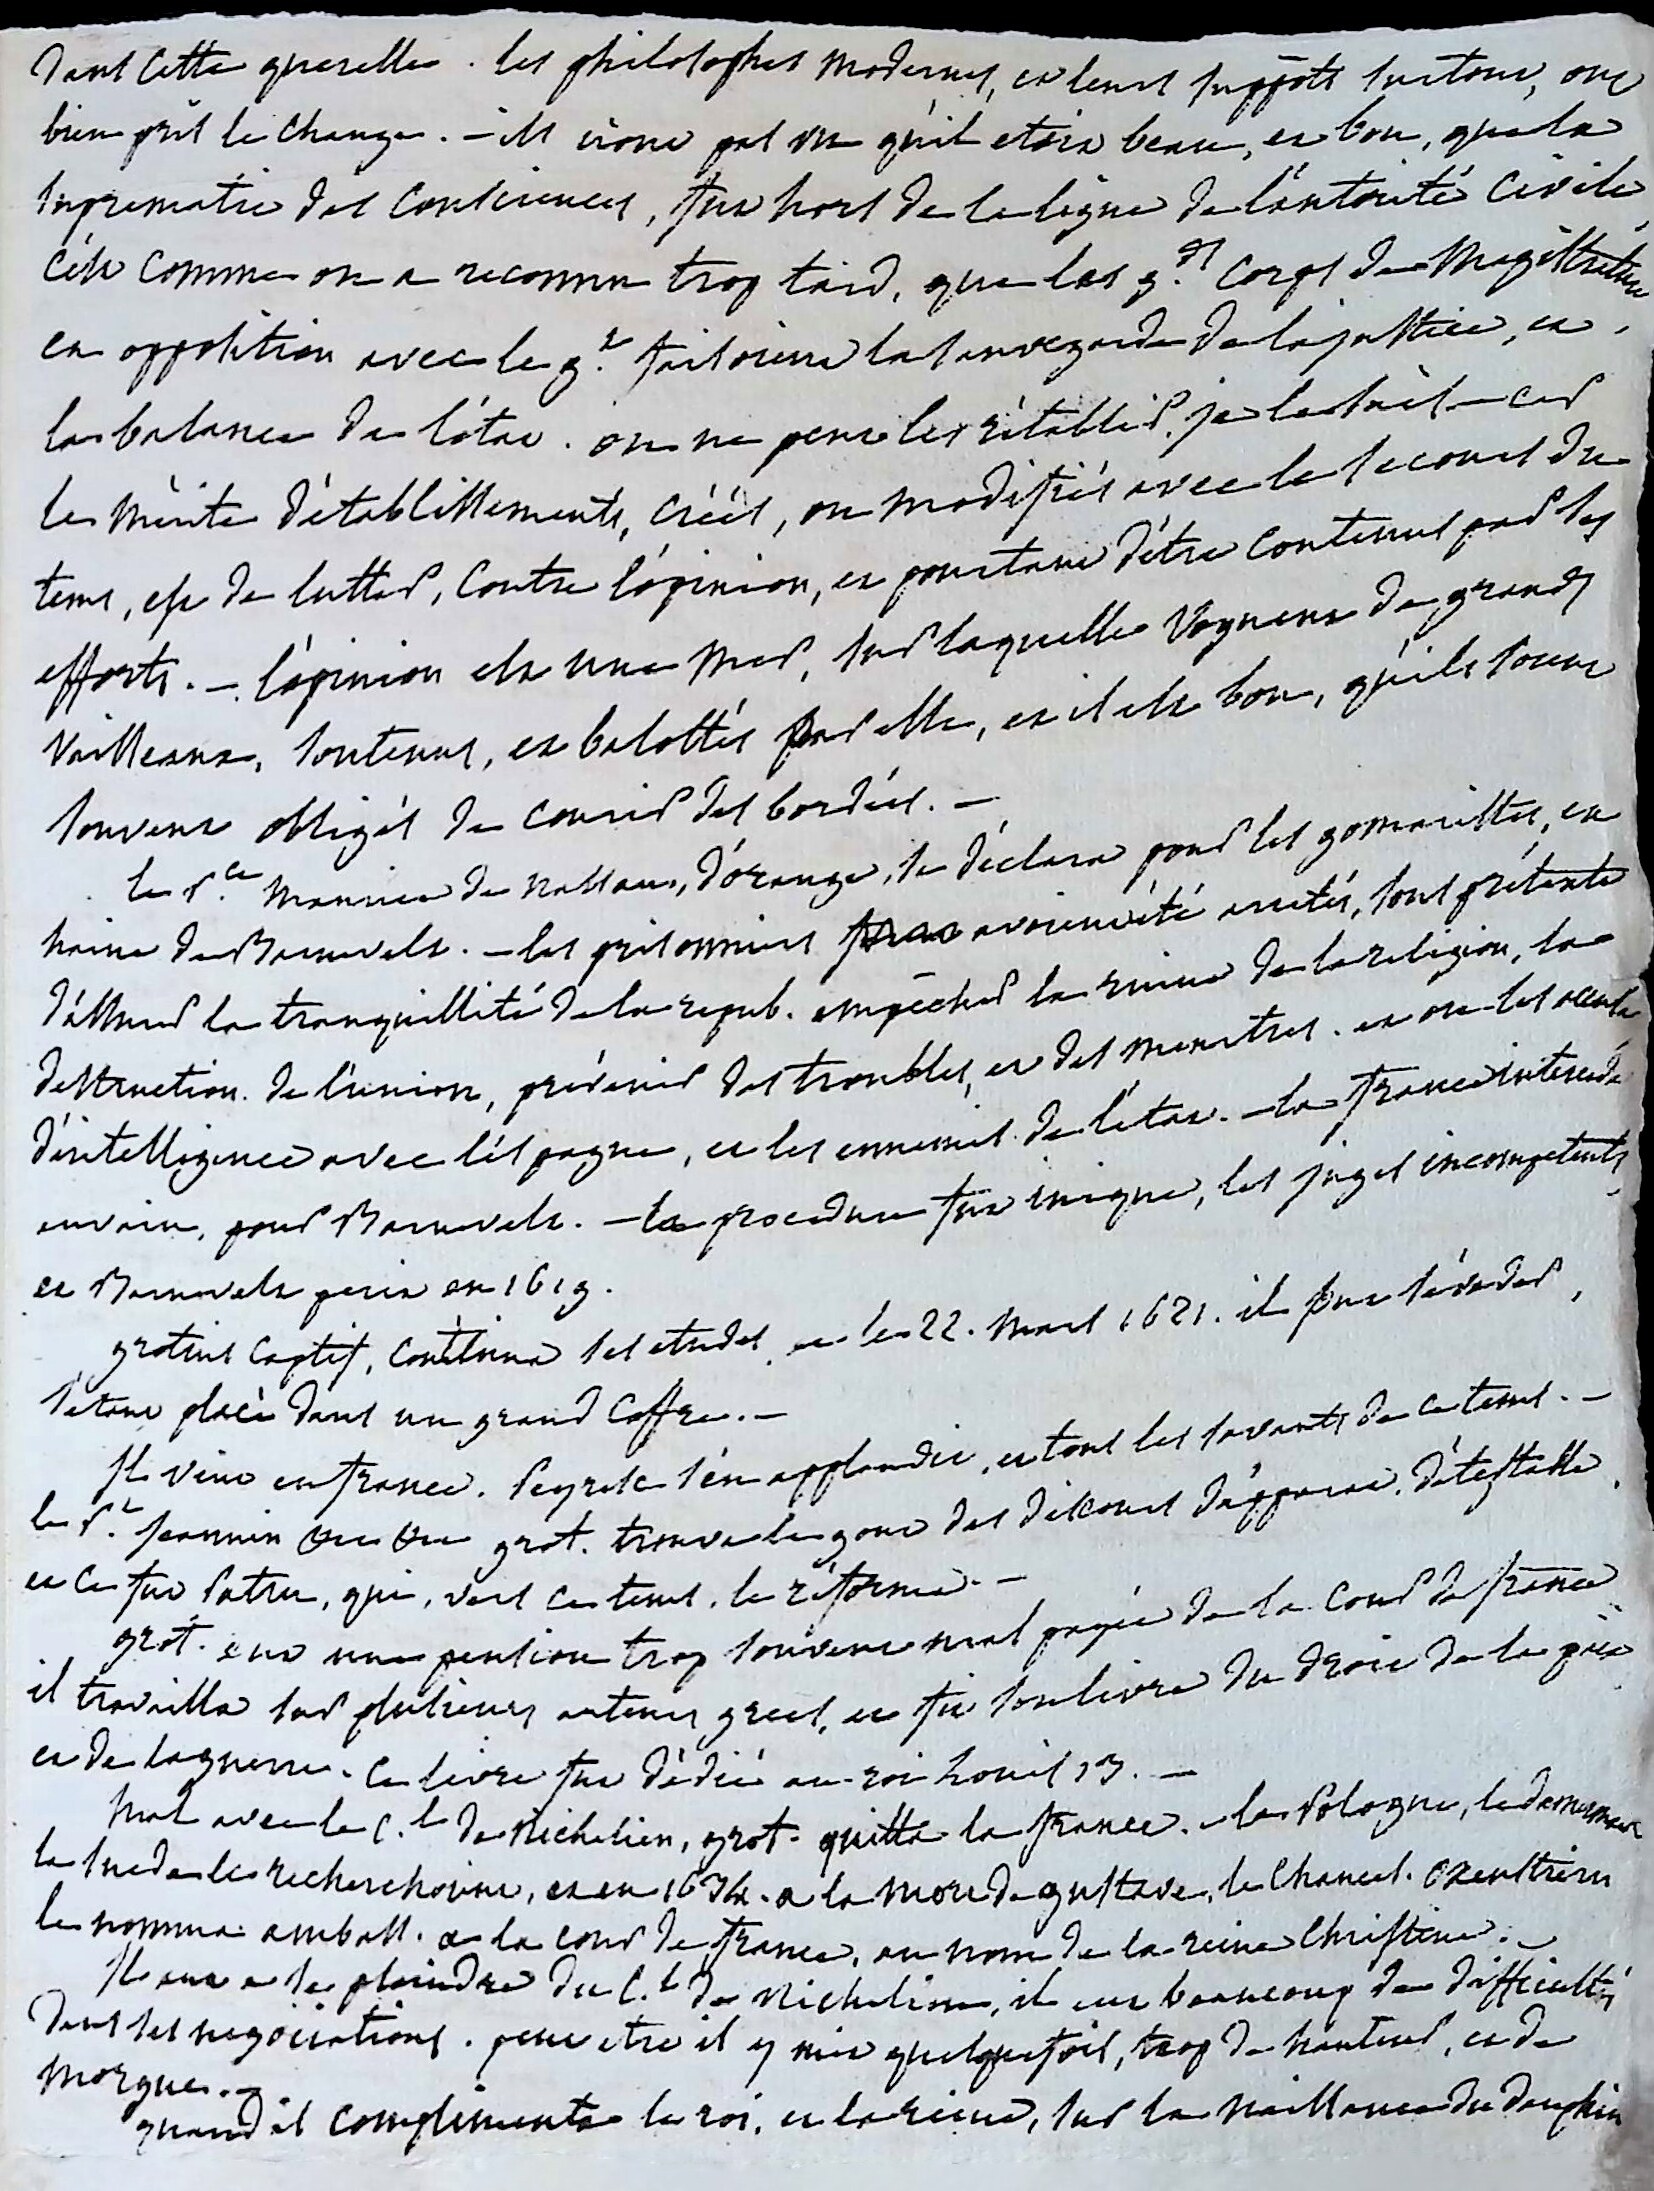 dans cette querelle. les philosophes modernes, et leurs suppôts surtout, ont
bien pris le change. – ils n'ont pas vu qu'il etoit beau, et bon, que la
suprematie des consciences, fut hors de la ligne de l'autorité civile,
c'est comme on a reconnu trop tard, que les g.ds corps de magistrature
en opposition avec le g.t faisoient la sauvegarde de la justice, et
la balance de l'état. on ne peut les rétablir, je le sais – car
le mérite d'établissements, créés, ou modifiés avec le secours du
tems, est de lutter, contre l'opinion, et pourtant d'être contenus par ses
efforts. – l'opinion est une mer, sur laquelle voguent de grands
vaisseaux, soutenus, et balottés par elle, et il est bon, qu'ils soient
souvent obligés de courir des bordées. –
le P.ce Maurice de Nassau, d'orange, se déclara pour les gomaristes, en
haine de Barnevelt. – les prisonniers avoient été arretés, sous prétexte
d'assurer la tranquillité de la repub. empêcher la ruine de la religion, la
destruction de l'union, prévenir des troubles, et des meurtres. et on les accusa
d'intelligence avec l'éspagne, et les ennemis de l'état. – la france intercéda
envain, pour Barnevelt. – la procedure fut inique, les juges incompetents,
et Barnevelt perit en 1619.
grotius captif, continua ses etudes, et le 22. mars 1621. il put s'évader,
s'étant placé dans un grand coffre. –
Il vint en france. Peyresc s'en applaudit, et tous les savants de ce tems. –
le P.t Jeannin grot. trouva le gout des discours d'apparat, détestable,
et ce fut Patru, qui, vers ce tems, le réforma. –
grot. eut une pension trop souvent mal payée de la cour de france
il travailla sur plusieurs auteurs grecs, et fit son livre du droit de la paix
et de la guerre. ce livre fut dédié au roi Louis 13. –
mal avec le C.l de Richelieu, grot. quitta la france. – la Pologne, le dannemark
la suede le recherchoient, et en 1634. a la mort de gustave, le chancel. oxenstiern
le nomma ambass. a la cour de france, au nom de la reine Christine. –
Il eut a se plaindre du C.l de Richelieu, il eut beaucoup de difficultés
dans ses negociations. peut etre il y mit quelquefois, trop de hauteur, et de
morgue. –
quand il complimenta le roi, et la reine, sur la naissance du dauphin